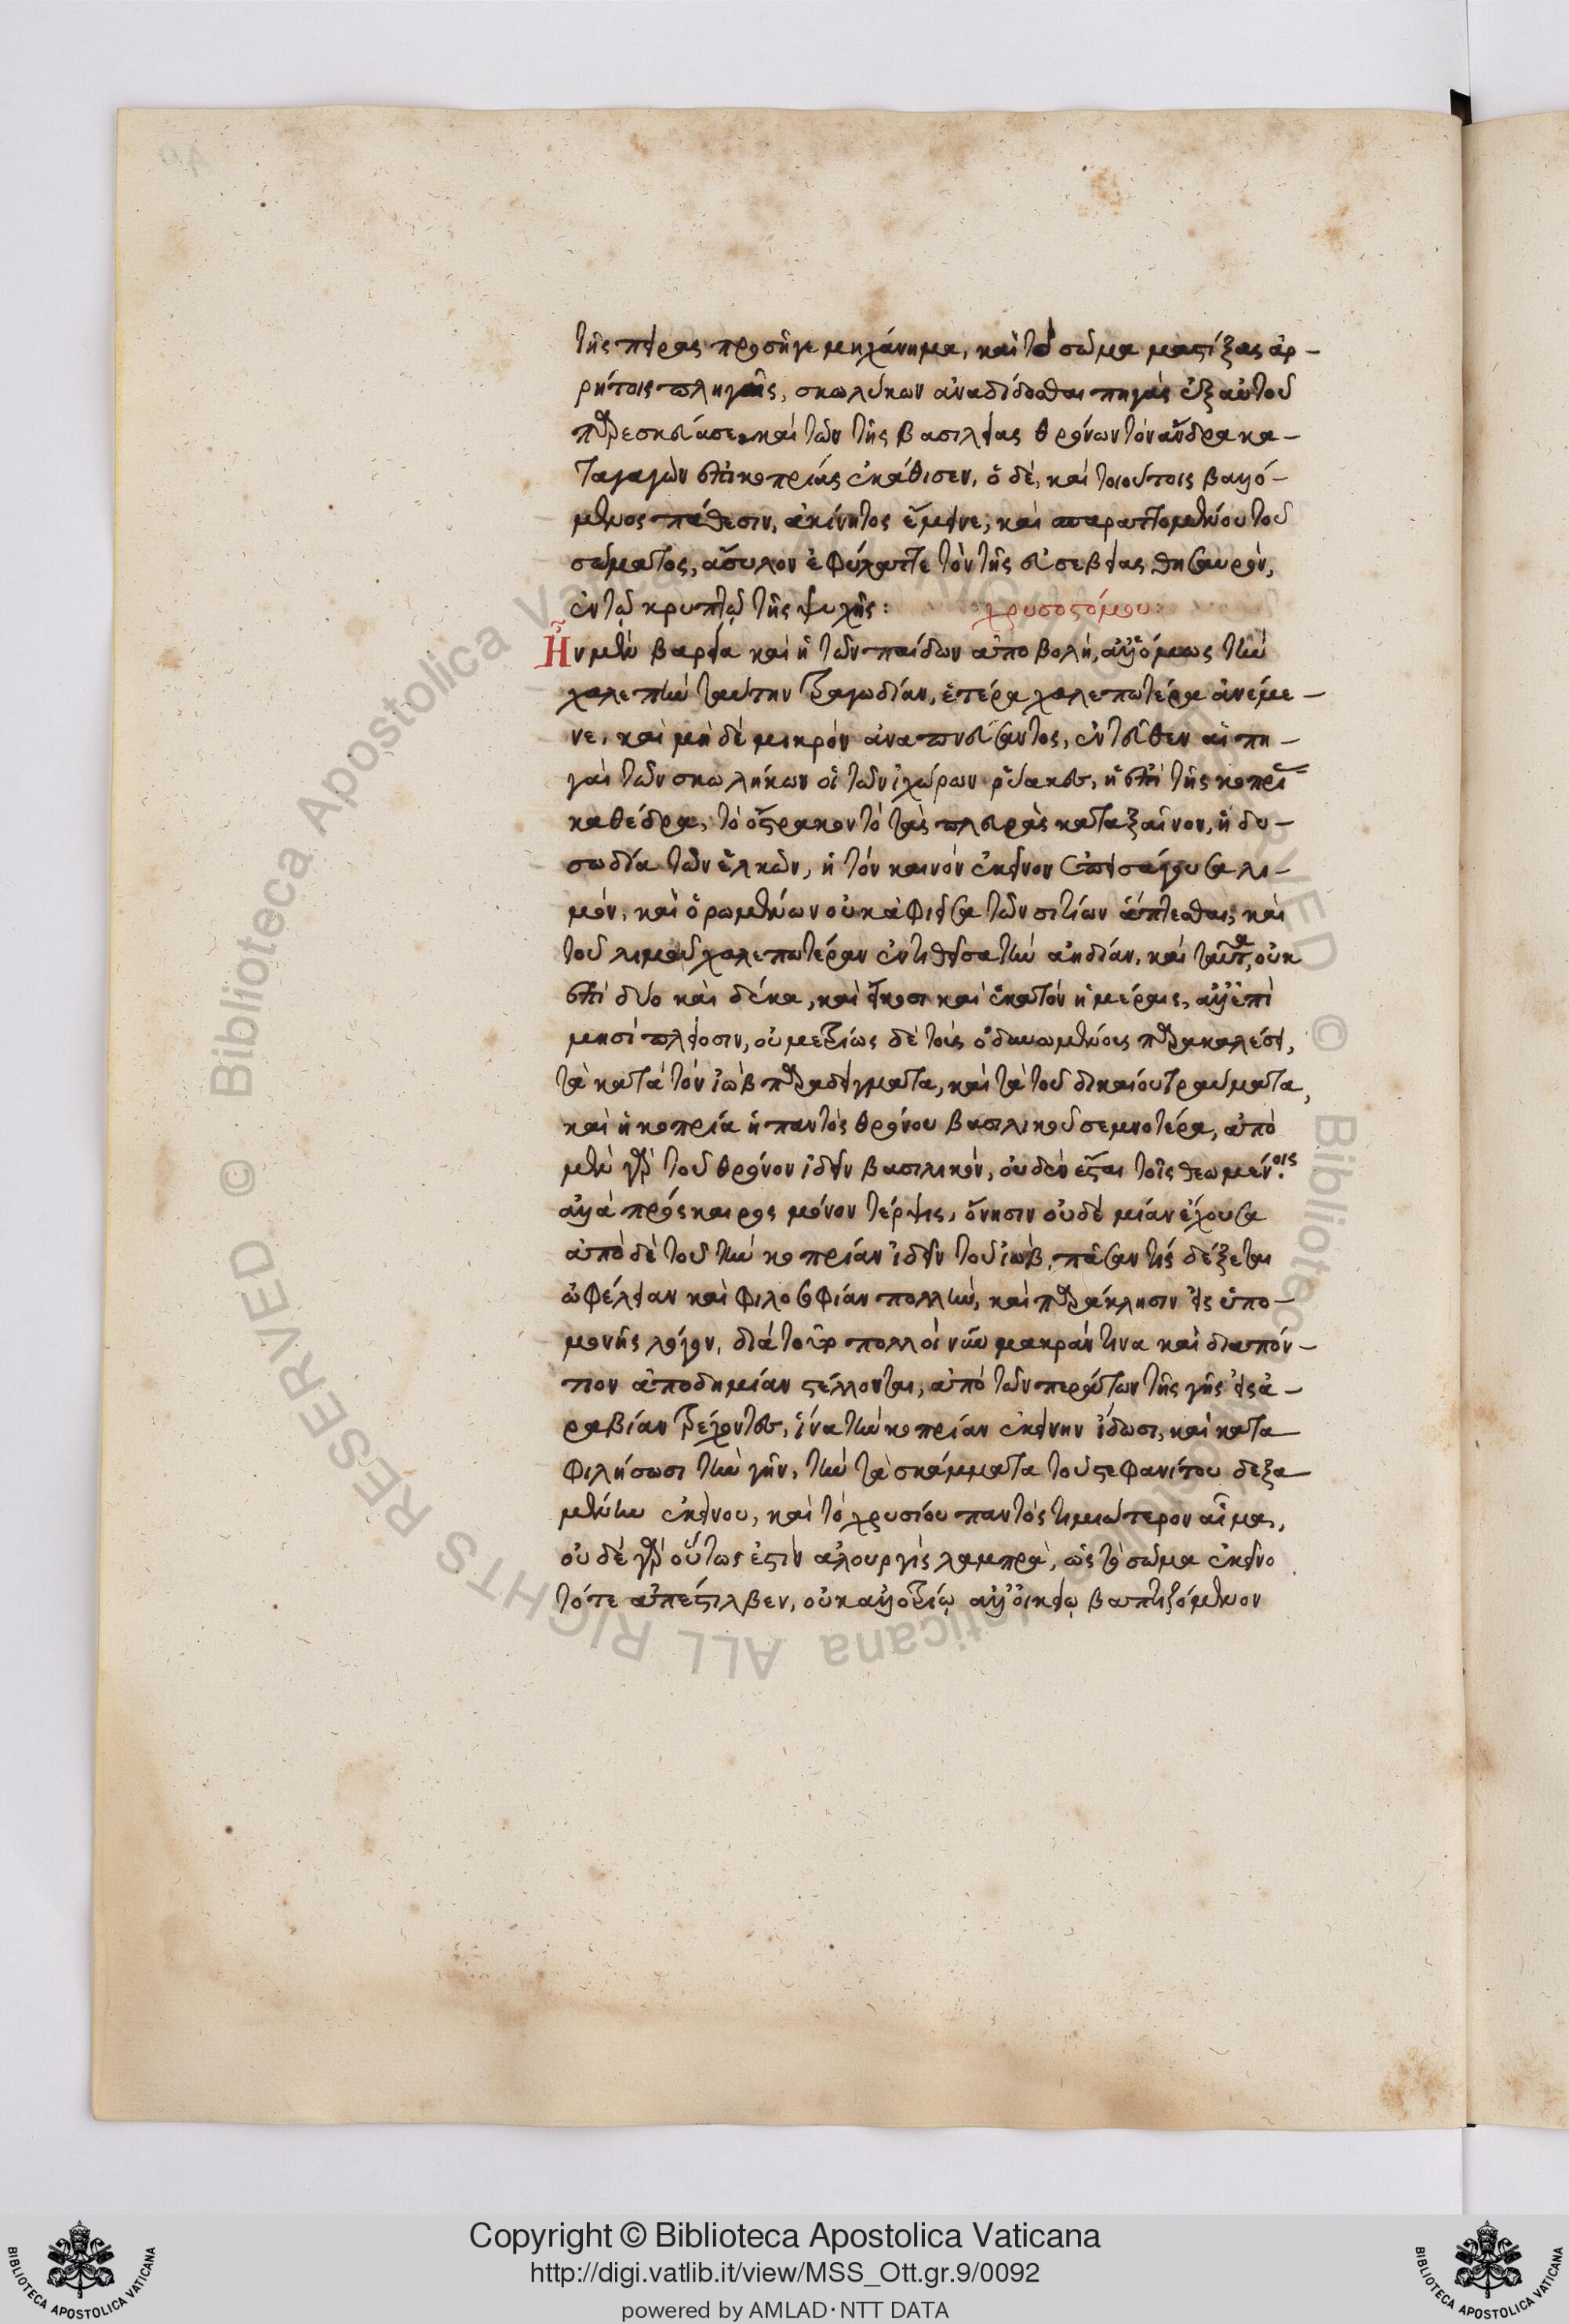 τῆς πείρας προσῆγε μηχάνημα, καὶ τὸ σῶμα μαστίξας ἀρ-
ρήτοις πληγαῖς, σκωλήκων ἀναδίδοσθαι πηγὰς ἐξ αὐτοῦ
παρεσκεύασε. καὶ τῶν τῆς βασιλείας θρόνων τὸν ἄνδρα κα-
ταγαγὼν ἐπὶ κοπρίας ἐκάθισεν, ὁ δὲ, καὶ τοιούτοις βαλλό-
μενος πάθεσιν, ἀκίνητος ἔμεινε, καὶ σπαραττομένου τοῦ
σώματος, ἄσυλον ἐφύλαττε τὸν τῆς εὐσεβείας θησαυρὸν,
ἐν τῷ κρυπτῷ τῆς ψυχῆς:
χρυσοστόμου:
Ἦν μὲν βαρεῖα καὶ ἡ τῶν παίδων ἀποβολὴ, ἀλλ' ὅμως τὴν
χαλεπὴν ταύτην τραγωδίαν, ἑτέρα χαλεπωτέρα ἀνέμε-
νε, καὶ μὴ δὲ μικρὸν ἀναπνεύσαντος, ἐντεῦθεν αἱ πη-
γαὶ τῶν σκωλήκων οἱ τῶν ἰχώρων ῥύακες, ἡ ἐπὶ τῆς κοπρί
καθέδρα, τὸ ὄστρακον τὸ τὰς πλευρὰς καταξαῖνον, ἡ δυ-
σωδία τῶν ἑλκῶν, ἡ τὸν καινὸν ἐκεῖνον ἐπεισάγουσα λι-
μὸν, καὶ ὁρωμένων οὐκ ἀφιεῖσα τῶν σιτίων ἅπτεσθαι, καὶ
τοῦ λιμοῦ χαλεπωτέραν ἐντιθεῖσα τὴν ἀηδίαν, καὶ ταῦτα, οὐκ
ἐπὶ δύο καὶ δέκα, καὶ εἴκοσι καὶ ἑκατὸν ἡμέραις, ἀλλ' ἐπὶ
μησὶ πλείοσιν, οὐ μετρίως δὲ τοὺς ὀδυνωμένους παρακαλέσει,
τὰ κατὰ τὸν ἰὼβ παραδείγματα, καὶ τὰ τοῦ δικαίου τραύματα,
καὶ ἡ κοπρία ἡ παντὸς θρόνου βασιλικοῦ σεμνοτέρα, ἀπὸ
μὲν γὰρ τοῦ θρόνον ἰδεῖν βασιλικὸν, οὐδὲν ἔσται τοῖς θεωμένοις.
ἀλλὰ πρόσκαιρος μόνον τέρψις, ὄνησιν οὐδὲ μίαν ἔχουσα
ἀπὸ δὲ τοῦ τὴν κοπρίαν ἰδεῖν τοῦ ἰὼβ, πᾶσαν τίς δέξεται
ὠφέλειαν καὶ φιλοσοφίαν πολλὴν, καὶ παράκλησιν εἰς ὑπο-
μονῆς λόγον, διὰ τοῦτο πολλοὶ νῦν μακράν τινα καὶ διαπόν-
τιον ἀποδημίαν στέλλονται, ἀπὸ τῶν περάτων τῆς γῆς εἰς ἀ-
ραβίαν τρέχοντες, ἵνα τὴν κοπρίαν ἐκείνην ἴδωσι, καὶ κατα
φιλήσωσι τὴν γῆν, τὴν τὰ σκάμματα τοῦ στεφανίτου δεξα
μένην ἐκείνου, καὶ τὸ χρυσίου παντὸς τιμιώτερον αἷμα,
οὐ δὲ γὰρ οὕτως ἐστὶν ἁλουργὶς λαμπρὰ, ὡς τὸ σῶμα ἐκεῖνο
τότε ἀπέστιλβεν, οὐκ ἀλλοτρίῳ ἀλλ' οἰκείῳ βαπτιζόμενον
Copyright © Biblioteca Apostolica Vaticana
http://digi.vatlib.it/view/MSS_Ott.gr.9/0092
powered by AMLAD·NTT DATA